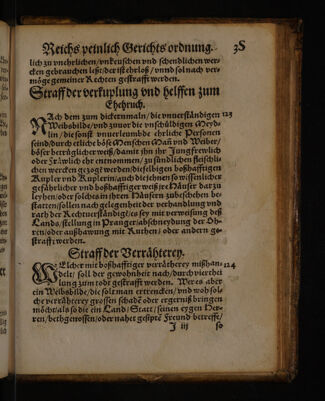 Reichs peinlich Gerichts ordnung. 38
lich zu vnehrlichen/vnkeuschen vnd schendlichen wer-
cken gebrauchen lest/der ist ehrloß/vnnd sol nach ver-
mög gemeiner Rechten gestrafft werden.
Straff der verkuplung vnd helffen zum
Ehebruch.
NAch dem zum dickermaln/die vnuerständigen 123
Weibsbilde/vnd zuuor die vnschüldigen Meyd-
lin/die sonst vnuerleumbde ehrliche Personen
seind/durch etliche böse Menschen Man vnd Weiber/
böser betrüglicher weiß/damit jhn jhr Jungfrewlich
oder Fräwlich ehr entnommen/zu sündlichen fleischli-
chen wercken gezogē werden/dieselbigen boßhafftigen
Kupler vnd Kuplerin/auch die jhenen so wissentlicher
gefährlicher vnd boßhafftiger weiß jre Häuser dar zu
leyhen/oder solches in jhren Häusern zubeschehen be-
statten/sollen nach gelegenheit der verhandlung vnd
rath der Rechtuerständigē/es sey mit verweisung deß
Lands/stellung in Pranger/abschneydung der Oh-
ren/oder außhawung mit Ruthen/oder andern ge-
strafft werden.
Straff der Verrähterey.
WElcher mit boßhafftiger verrähterey mißhan- 124
delt/soll der gewohnheit nach/durch viertheil
lung zum todt gestrafft werden. Wer es aber
ein Weibsbilde/die sol man ertrencken/vnd wo solch
verrähterey grossen schadē oder ergerniß bringen
möcht/als so die ein Land/Statt/seinen eygen Her-
ren/bethgenossen/oder nahet gesipte Freund betreffe/
J iij so